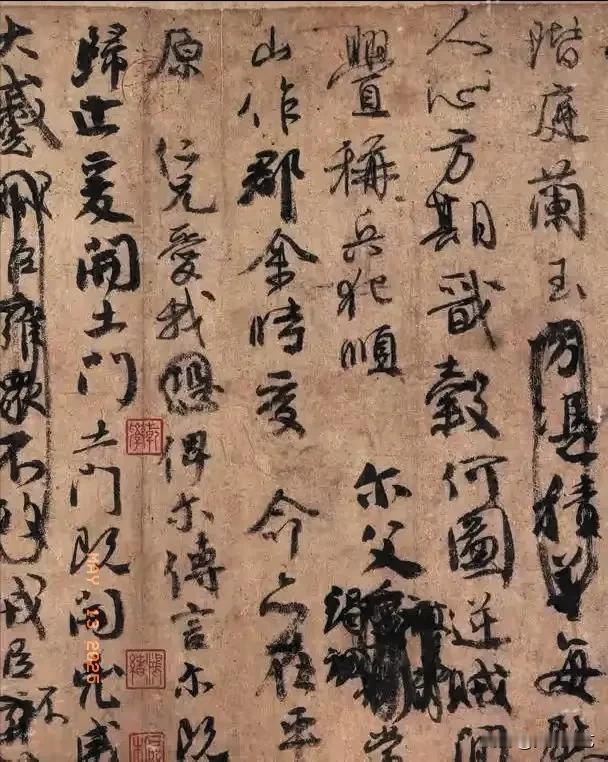 階庭蘭玉方憑積善每慰
人心方期戩穀何圖逆賊間
釁稱兵犯順尔父竭誠常
山作郡余時受命亦在平
原仁兄愛我俾尔傳言尔既
歸止爰開土門土門既開兇威
大蹙賊臣擁衆不救賊臣不擁
MAY 13 2025